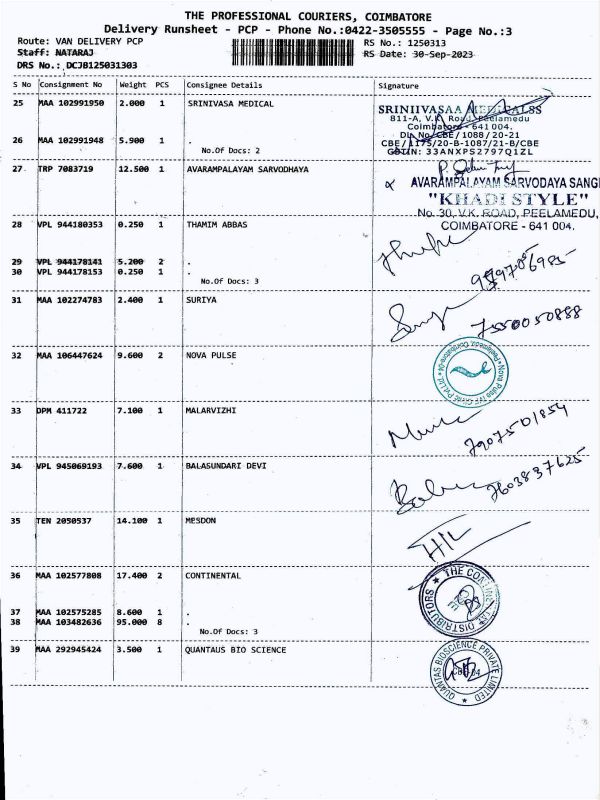 THE PROFESSIONAL COURIERS, COIMBATORE
Delivery Runsheet - PCP - Phone No.:0422-3505555 - Page No.:3
Route: VAN DELIVERY PCP RS No.: 1250313
Staff: NATARAJ RS Date: 30-Sep-2023
DRS No.: DCJB125031303
S No Consignment No Weight PCS Consignee Details Signature
25 MAA 102991950 2.000 1 SRINIVASA MEDICAL
SRINIIVASAA MEDICALSS
811-A, V.K. Road, Peelamedu
Coimbatore - 641 004.
DL No. CBE/1088/20-21
26 MAA 102991948 5.900 1 . CBE/1175/20-B-1087/21-B/CBE
No.Of Docs: 2 GSTIN: 33ANXPS2797Q1ZL
27 TRP 7083719 12.500 1 AVARAMPALAYAM SARVODHAYA
AVARAMPALAYAM SARVODAYA SANG
"KHADI STYLE"
No. 30, V.K. ROAD, PEELAMEDU,
COIMBATORE - 641 004.
28 VPL 944180353 0.250 1 THAMIM ABBAS
29 VPL 944178141 5.200 2 .
30 VPL 944178153 0.250 1 .
No.Of Docs: 3
31 MAA 102274783 2.400 1 SURIYA
7550050888
32 MAA 106447624 9.600 2 NOVA PULSE
33 DPM 411722 7.100 1 MALARVIZHI
7907501854
34 VPL 945069193 7.600 1 BALASUNDARI DEVI
7603837625
35 TEN 2050537 14.100 1 MESDON
H/L
36 MAA 102577808 17.400 2 CONTINENTAL
THE CONTINENTAL
DISTRIBUTORS
37 MAA 102575285 8.600 1 .
38 MAA 103482636 95.000 8 .
No.Of Docs: 3
39 MAA 292945424 3.500 1 QUANTAUS BIO SCIENCE
QUANTAS BIOSCIENCE PRIVATE LIMITED